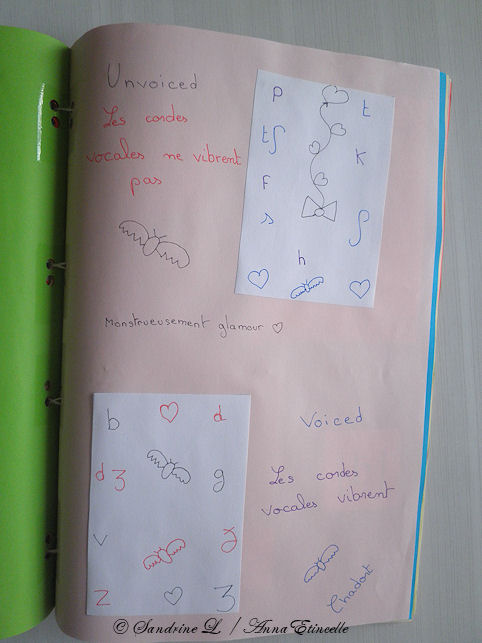 Unvoiced
Les cordes
vocales ne vibrent
pas
p
t
tʃ
K
F
s
ʃ
h
Monstrueusement glamour ♡
b
d
dʒ
g
v
z
ʒ
Voiced
Les cordes
vocales vibrent
© Sandrine L. / AnnaEtincelle